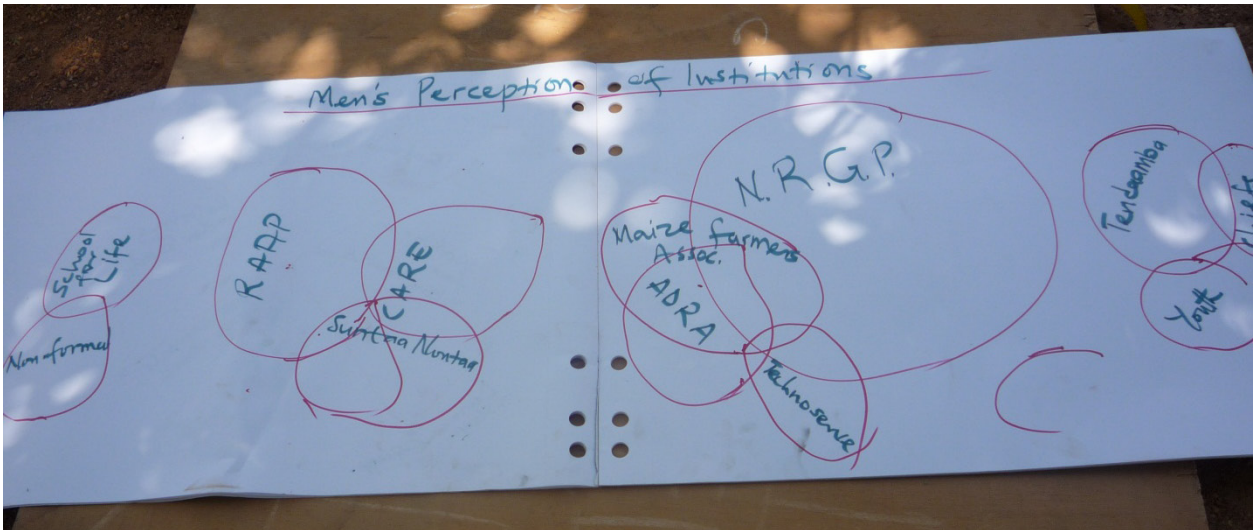 Men's Perception of Institutions
School
for
Life
Non forma
RAAP
CARE
Suntaa Nuntaa
N.R.G.P.
Maize farmers
Assoc.
ADRA
Technoserve
Tendaamba
Youth